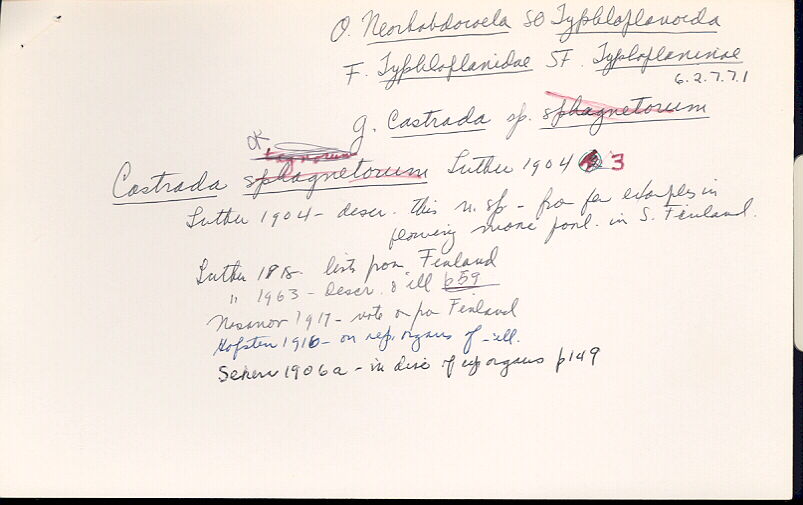 O. Neorhabdocoela SO Typhloplanoida
F. Typhloplanidae SF. Typhloplaninae
6.2.7.7.1
g. Castrada sp. sphagnetorum
OK
Castrada sphagnetorum Luther 1904 3
Luther 1904 - descr. this n. sp - from few examples in
flowing pond. in S. Finland.
Luther 1918 - lists from Finland
" 1963 - descr. & ill p59
Nasonov 1917 - note on fm Finland
Hofsten 1916 - on rep. organs of - ill.
Sekera 1906a - in disc of rep organs p149